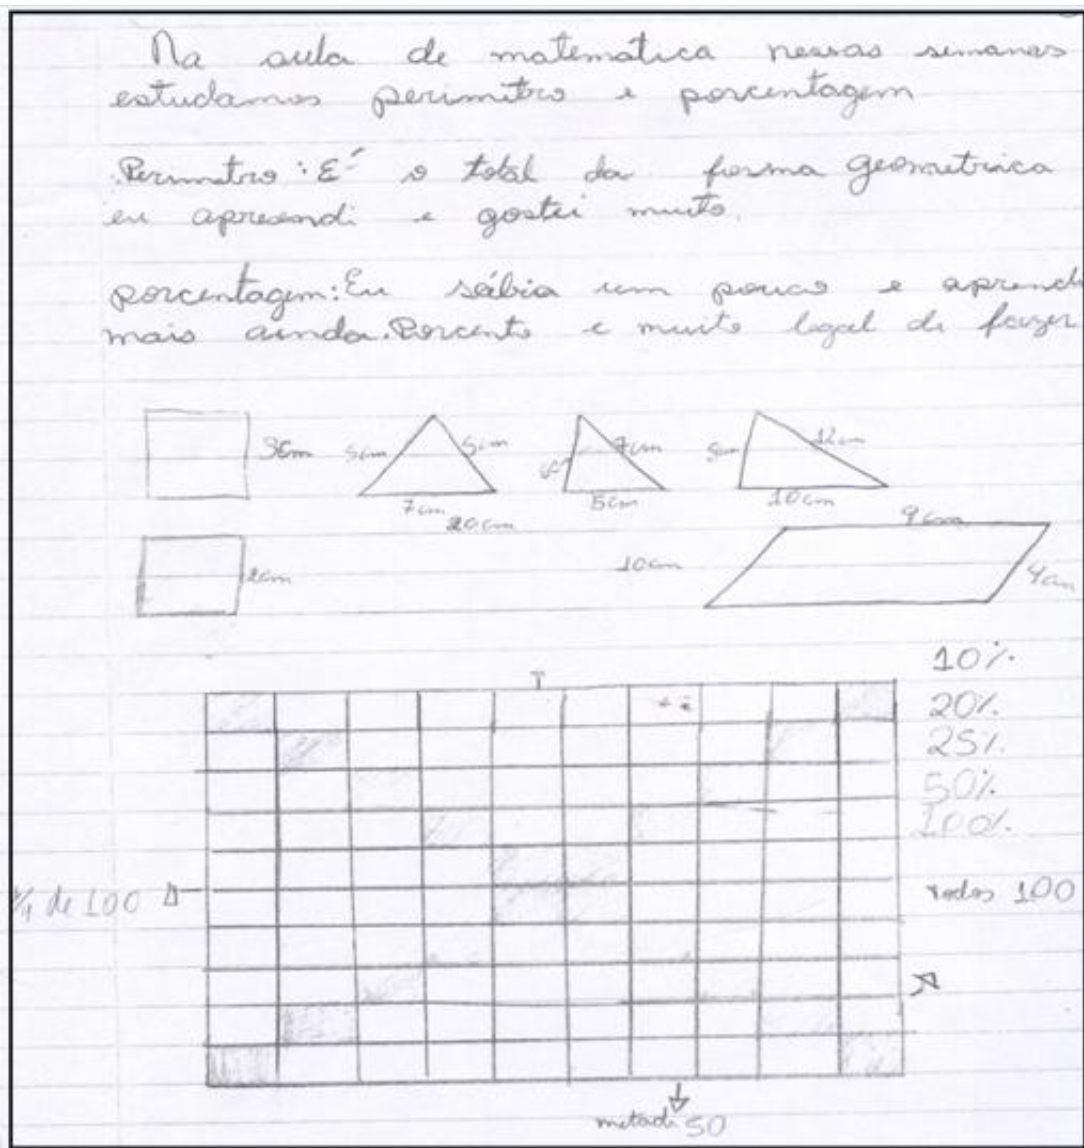 Na aula de matemática nessas semanas
estudamos perimitro e porcentagem
Perimitro: É o total da forma geometrica
eu apreendi e gostei muito.
porcentagem: Eu sábia um pouco e aprendi
mais ainda. Porcento e muito legal de fazer
3cm 5cm 5cm 7cm 12cm
7cm 5cm 10cm
20cm 9cm
2cm 10cm 4cm
10%
20%
25%
50%
100%
1/4 de 100 todos 100
metade 50